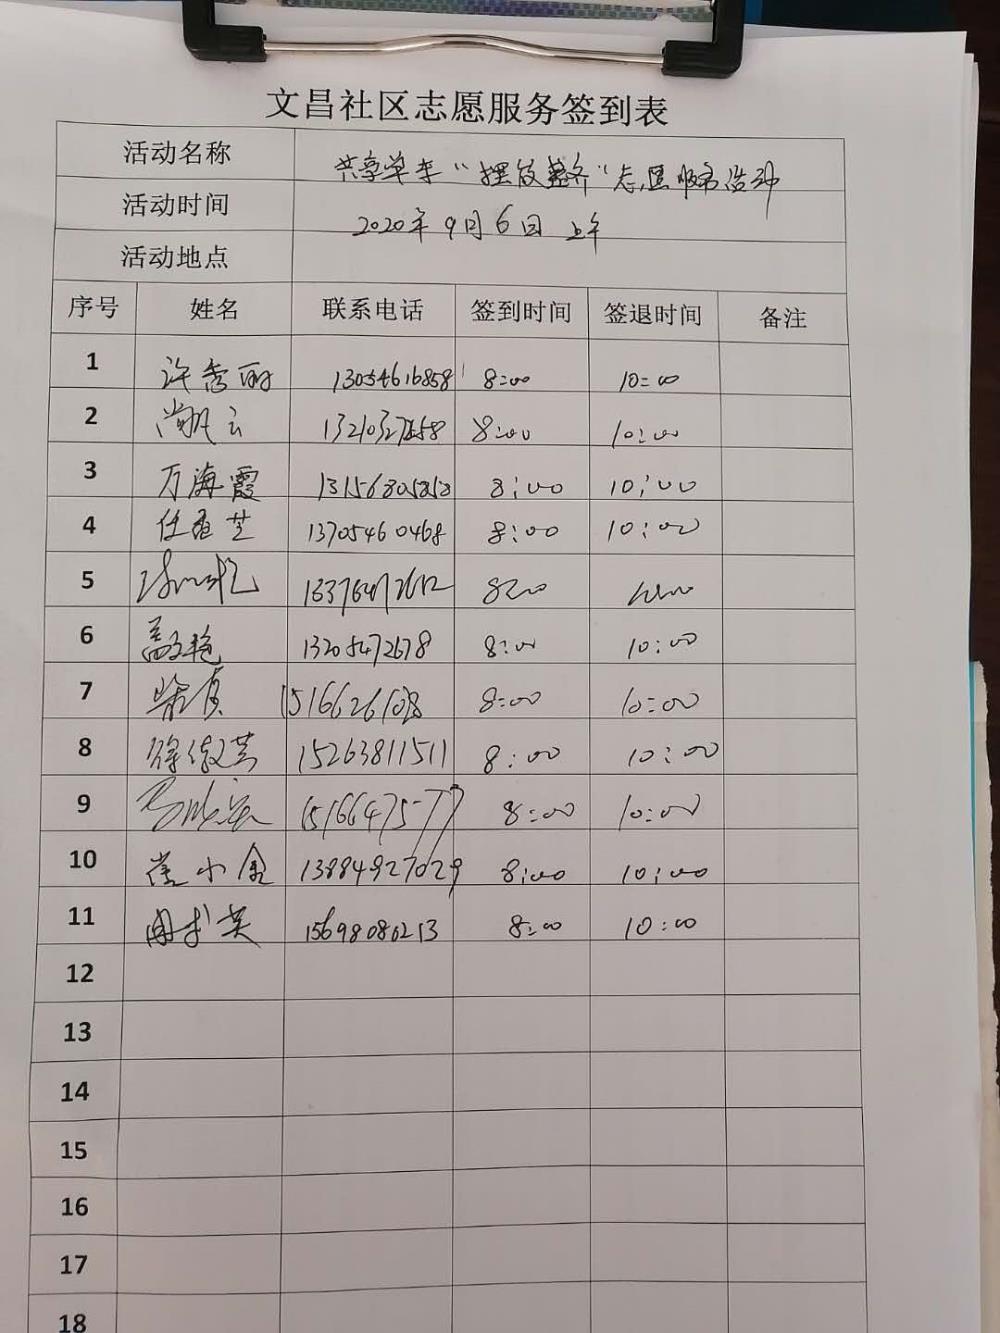 文昌社区志愿服务签到表
活动名称 共享单车“摆放整齐”志愿服务活动
活动时间 2020年9月6日 上午
活动地点
序号 姓名 联系电话 签到时间 签退时间 备注
1 许秀丽 13054616858 8:00 10:00
2 8:00 10:00
3 万海霞 13156805858 8:00 10:00
4 任香芝 13705460468 8:00 10:00
5 8:00
6 13205472678 8:00 10:00
7 柴贞 8:00 10:00
8 徐俊芸 15263811511 8:00 10:00
9 8:00 10:00
10 崔小金 13884927029 8:00 10:00
11 15698080213 8:00 10:00
12
13
14
15
16
17
18